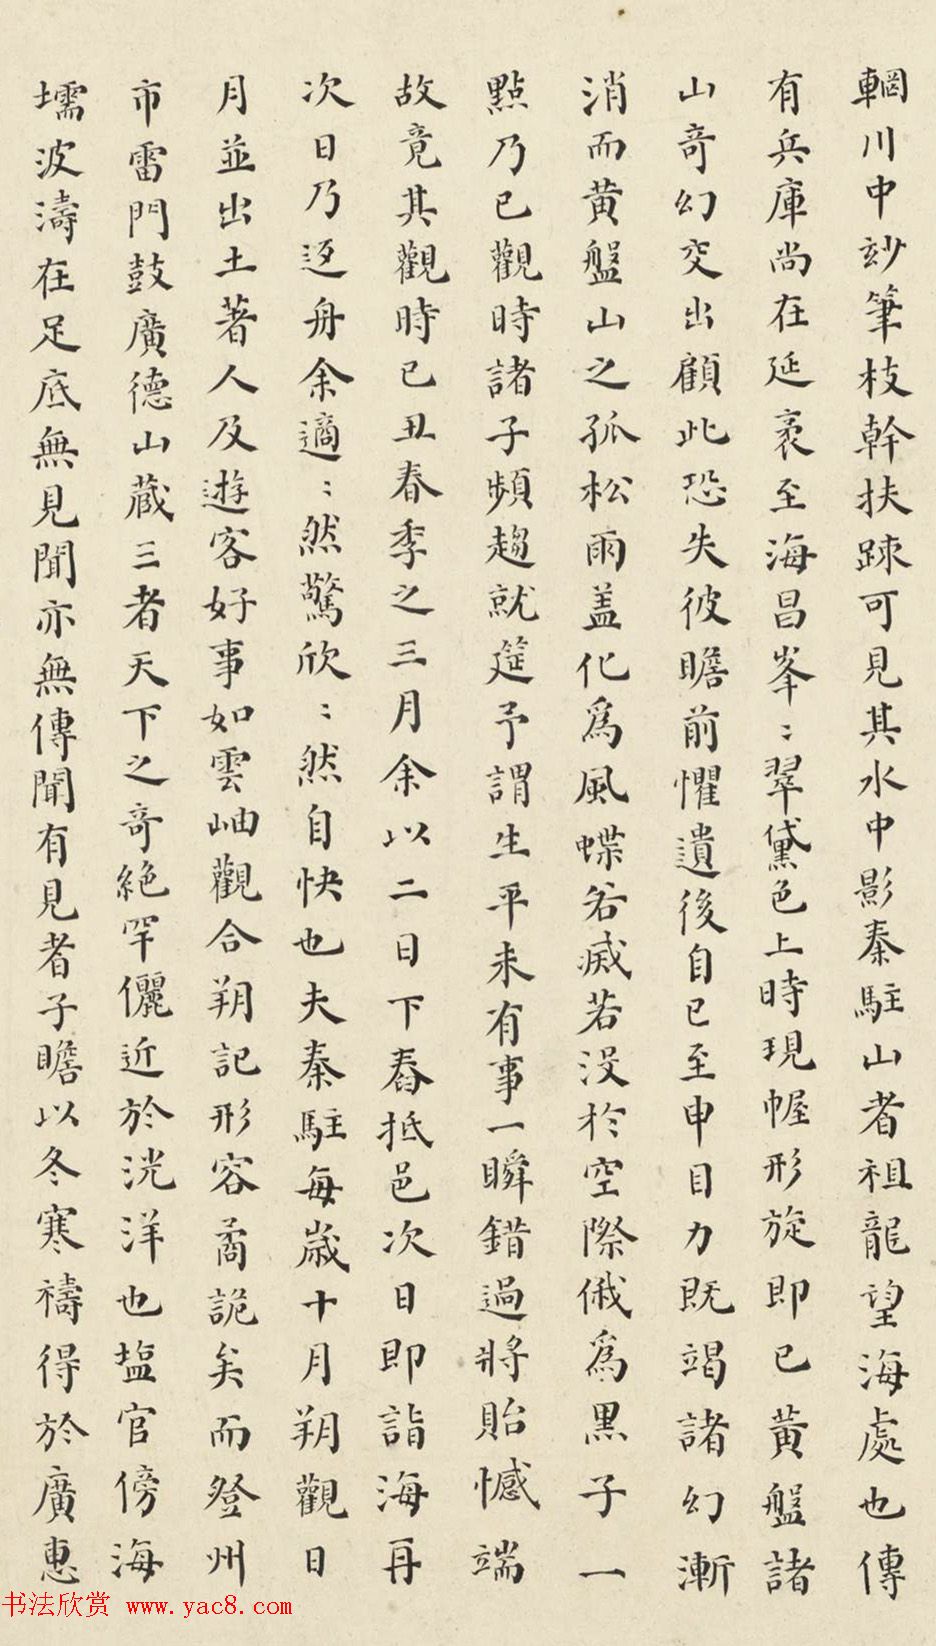 輞川中玅筆枝幹扶踈可見其水中影秦駐山者祖龍望海處也傳
有兵庫尚在延袤至海昌峯〻翠黛色上時現幄形旋即已黃盤諸
山奇幻交出顧此恐失彼瞻前懼遺後自巳至申目力既竭諸幻漸
消而黃盤山之孤松雨盖化爲風蝶若滅若没於空際俄爲黒子一
點乃已觀時諸子頻趨就筵予謂生平未有事一瞬錯過將貽憾端
故竟其觀時己丑春季之三月余以二日下舂抵邑次日即詣海再
次日乃返舟余適〻然驚欣〻然自快也夫秦駐每歲十月朔觀日
月並出土著人及遊客好事如雲岫觀合朔記形容矞詭矣而登州
市雷門鼓廣德山藏三者天下之奇絶罕儷近於洸洋也塩官傍海
壖波濤在足底無見聞亦無傳聞有見者子瞻以冬寒禱得於廣惠
书法欣赏 www.yac8.com